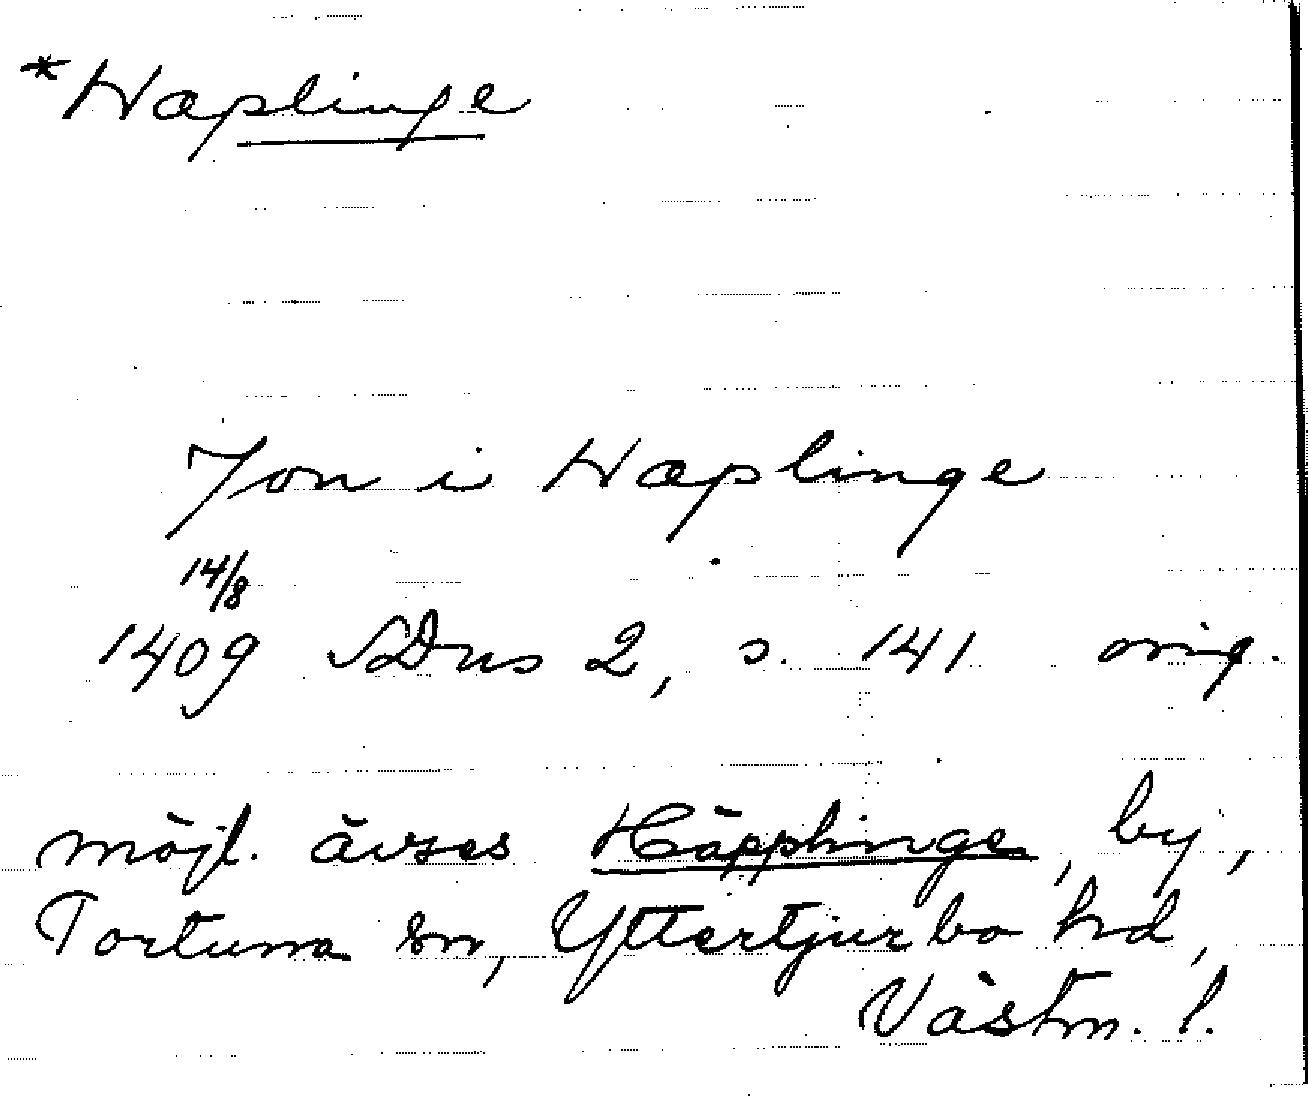 *Hæplinge
Jon i Hæplinge
14/8
1409 SDns 2, s. 141 orig.
möjl. avses Häpplinge, by,
Tortuna sn, Yttertjurbo hd,
Västm. l.